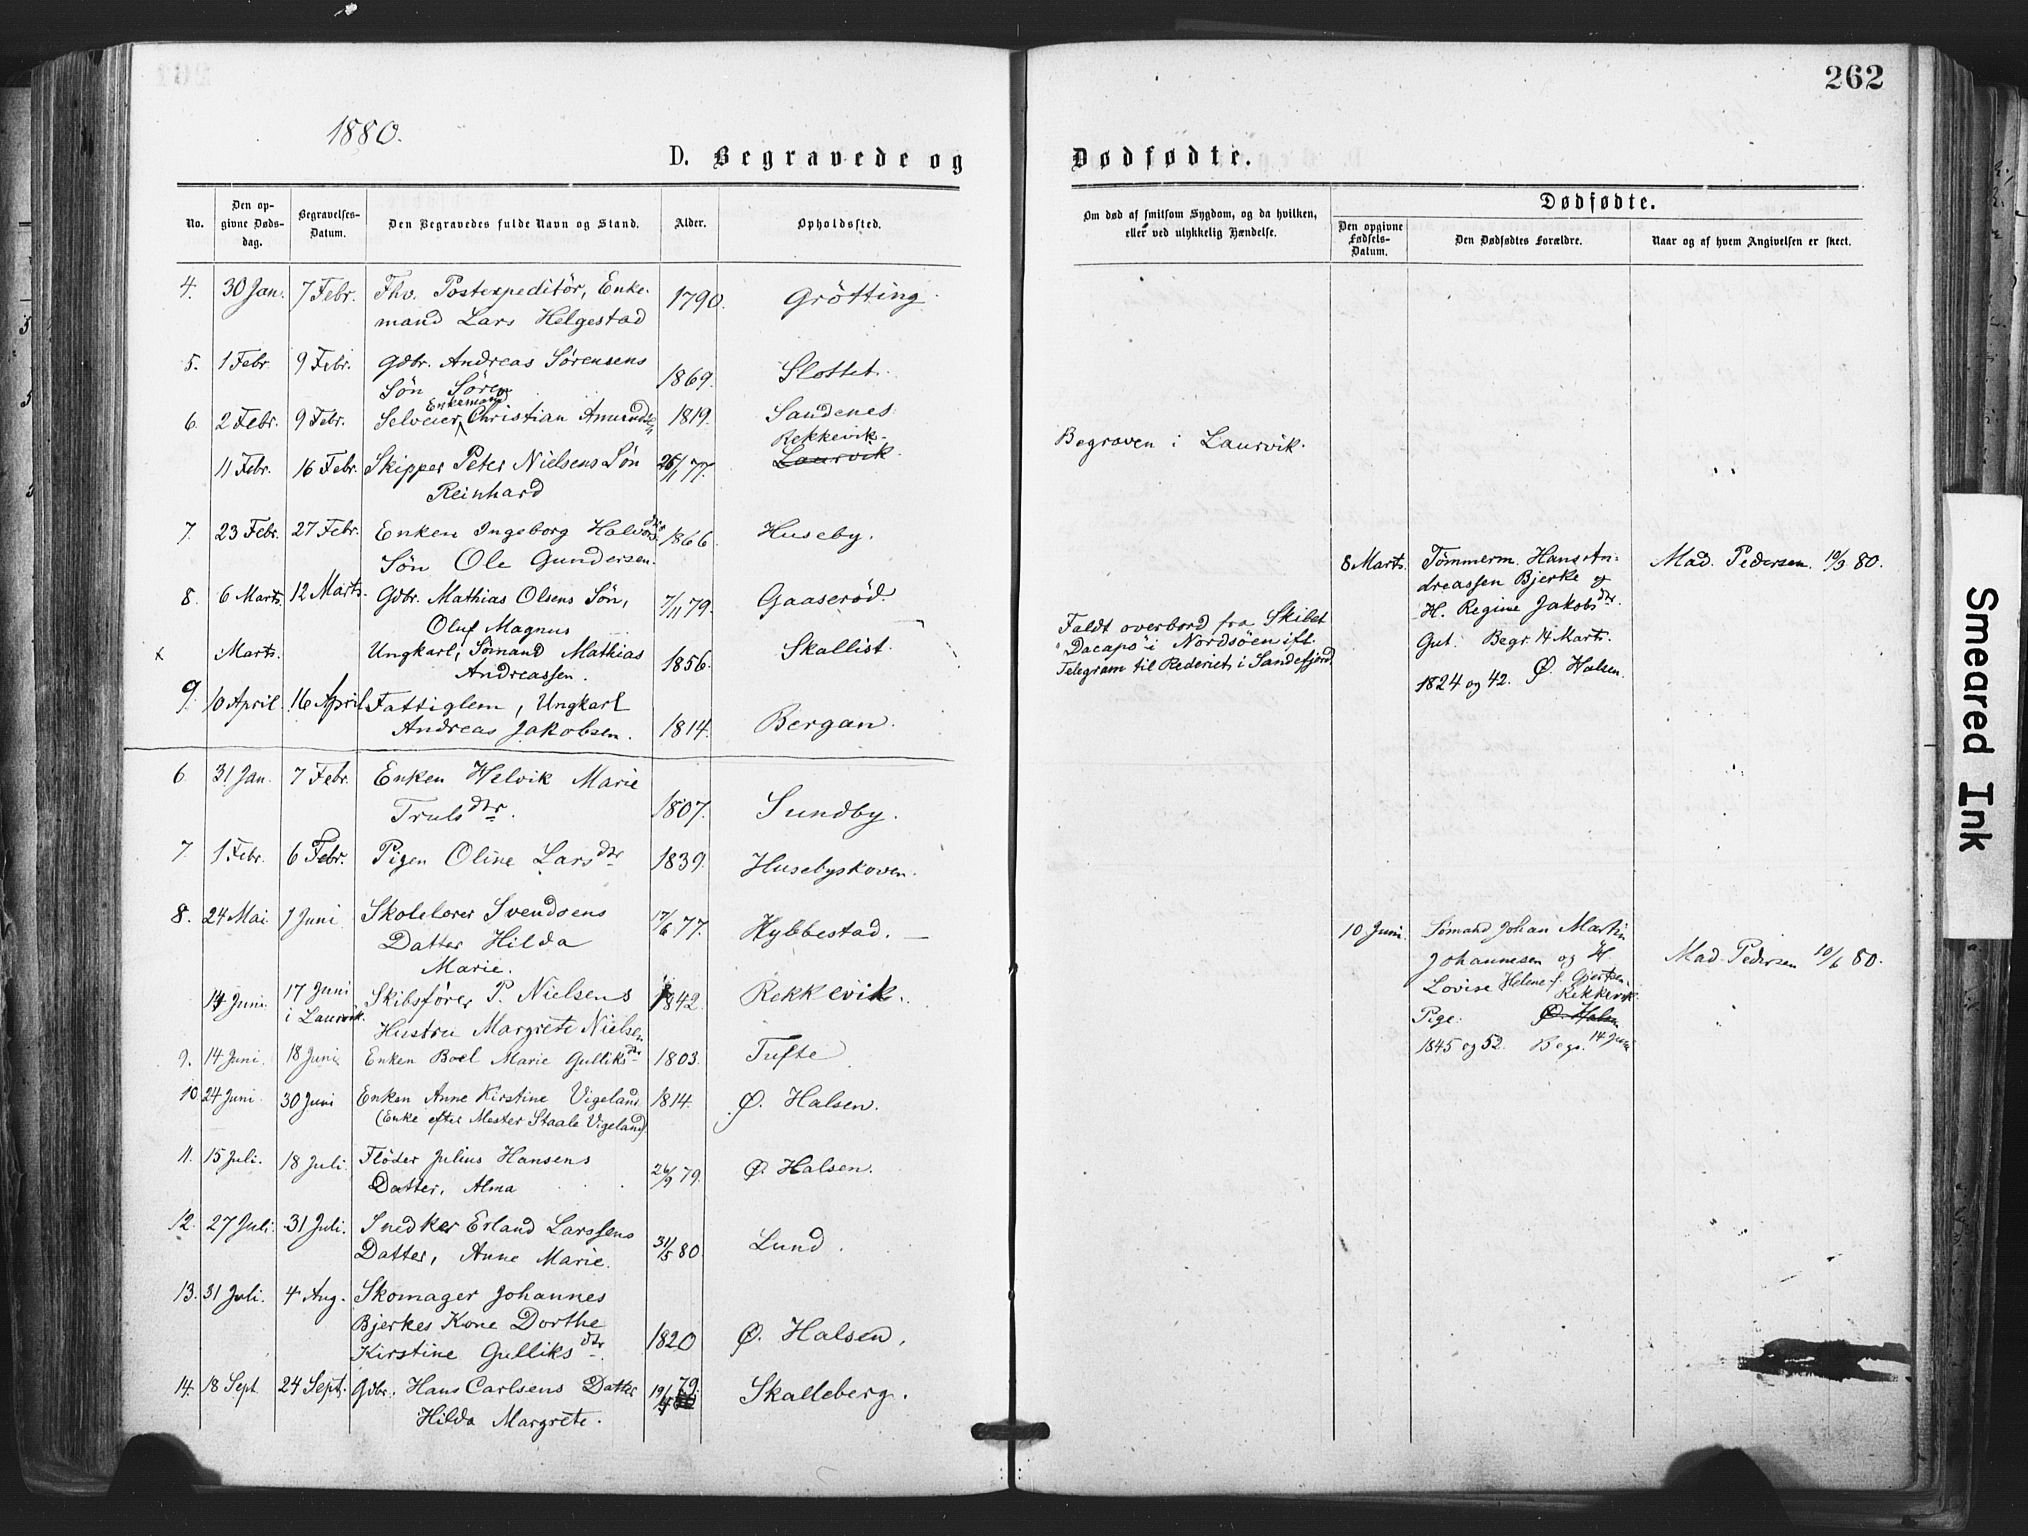 262
1880.
D. Begravede og
Dødfødte.
No.
Den op-
givne Døds-
dag.
Begravelses-
Datum.
Den Begravedes fulde Navn og Stand.
Alder.
Opholdssted.
Om død af smitsom Sygdom, og da hvilken,
eller ved ulykkelig Hændelse.
Dødfødte.
Den opgivne
Fødsels-
Datum.
Den Dødfødtes Forældre.
Naar og af hvem Angivelsen er skeet.
4. 30 Jan. 7 Febr. Fhv. Postexpeditör, Enke-
mand Lars Helgestad 1790. Grötting.
5. 1 Febr. 9 Febr. Gdbr. Andreas Sørensens
Søn Søren 1869. Slottet.
Enkemand
6. 2 Febr. 9 Febr. Selveier Christian Amunds 1819. Sandenes
Rekkevik.
11 Febr. 16 Febr. Skipper Peter Nielsens Søn 26/11 77. Laurvik.
Reinhard
Begraven i Laurvik.
7. 23 Febr. 27 Febr. Enken Ingeborg Halvorsdtr 1866. Huseby.
Søn Ole Gundersen.
8. 6 Marts. 12 Marts. Gdbr. Mathias Olsens Søn, 7/11 79. Gaaserød.
Oluf Magnus
x Marts. Ungkarl, Sømand Mathias 1856. Skallist.
Andreassen.
Faldt overbord fra Skibet
"Dacapo" i Nordsøen ift.
Telegram til Rederiet i Sandefjord.
9. 10 April. 16 April Fattiglem, Ungkarl
Andreas Jakobsen. 1814. Bergan.
8 Marts. Tömmerm. Hans An-
dreassen Bjerke og
H. Regine Jakobsdtr.
Gut. Begr. 14 Marts.
1824 og 42. Ø. Halsen.
Mad. Pedersen. 10/3 80.
6. 31 Jan. 7 Febr. Enken Helvik Marie
Trulsdtr. 1807. Sundby.
7. 1 Febr. 6 Febr. Pigen Oline Larsdtr 1839. Husebyskoven.
8. 24 Mai 1 Juni Skolelærer Svendsens 17/6 77. Hybbestad.
Datter Hilda
Marie.
14 Juni. 17 Juni
i Laurvik. Skibsfører P. Nielsens 1842. Rekkevik.
Hustru Margrete Nielsen
9. 14 Juni. 18 Juni Enken Boel Marie Gulliksdtr 1803. Tufte
10. 24 Juni. 30 Juni Enken Anne Kirstine Vigeland. 1814. Ø. Halsen.
(Enke efter Mester Staale Vigeland)
11. 15 Juli. 18 Juli. Flöder Julius Hansens
Datter, Alma 26/9 79. Ø. Halsen.
12. 27 Juli. 31 Juli. Snedker Erland Larssens
Datter, Anne Marie. 31/5 80. Lund.
13. 31 Juli. 4 Aug. Skomager Johannes
Bjerkes Kone Dorthe
Kirstine Gulliksdtr. 1820 Ø. Halsen.
14. 18 Sept. 24 Sept. Gdbr. Hans Carlsens Datter 19/4 79. Skalleberg.
Hilda Margrete.
10 Juni. Sømand Johan Martin
Johannesen og H.
Lovise Helene f. Gjertsen.
Rekkevik.
Pige. Ø. Halsen
1845 og 52. Begr. 14 Juni
Mad. Pedersen 10/6 80.
Smeared Ink